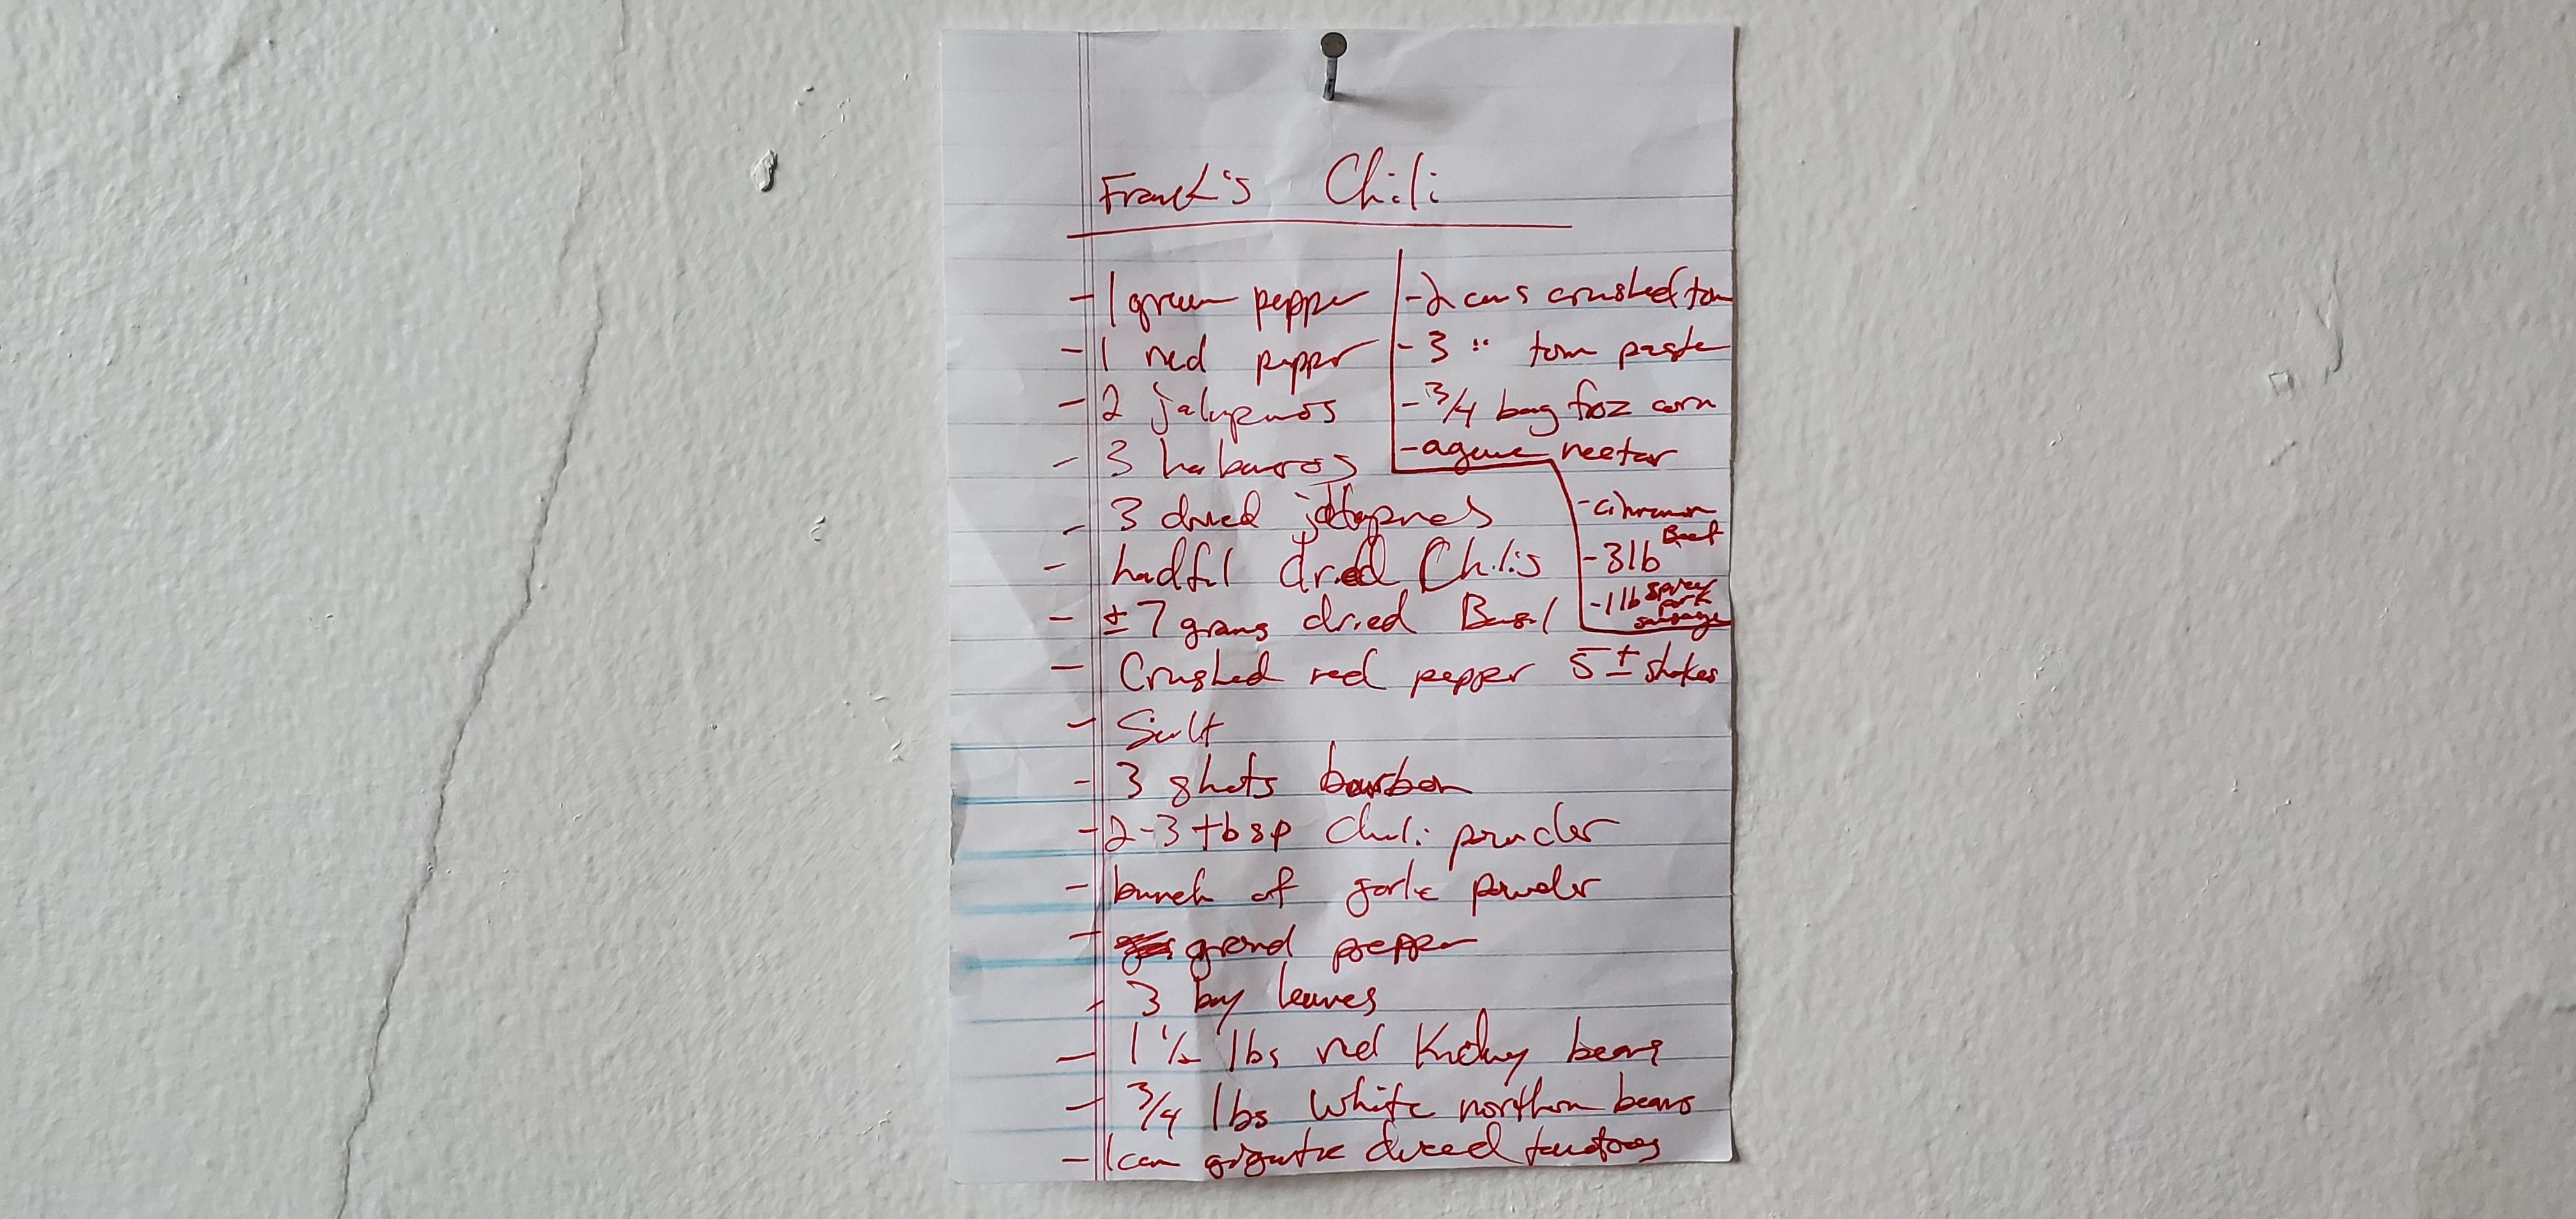 Frank's Chili
- 1 green pepper
- 1 red pepper
- 2 jalapenos
- 3 habaneros
- 3 dried jalapnes
- hadful dried Chilis
- ± 7 grams dried Basil
- Crushed red pepper 5 ± shakes
- Salt
- 3 shots bourbon
- 2-3 tbsp Chili powder
- bunch of garlic powder
- ground pepper
- 3 bay leaves
- 1 1/2 lbs red Kidney beans
- 3/4 lbs White northern beans
- 1 can gigantic diced tomatoes
- 2 cans crushed tom
- 3 " tom paste
- 3/4 bag froz corn
- agave nectar
- cinnamon
- 3lb Beef
- 1 lb spicy pork sausage